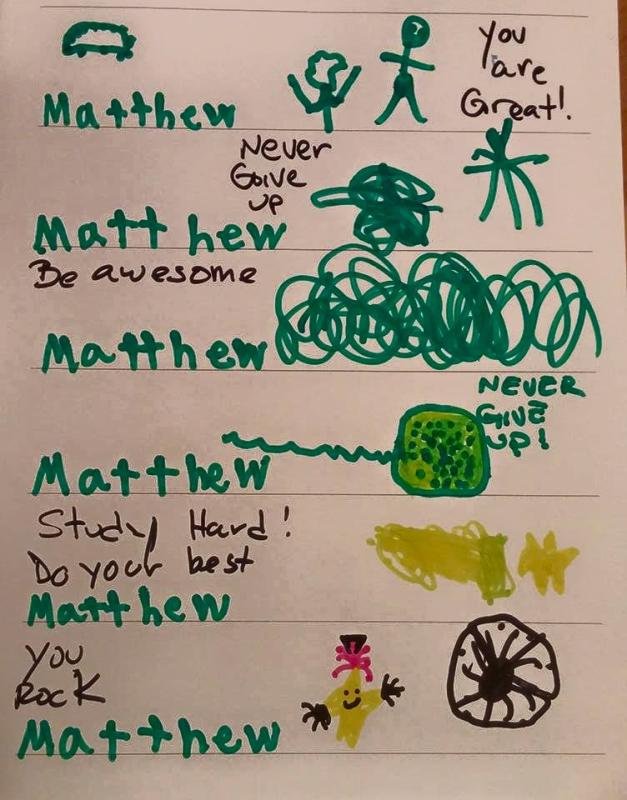 You
are
Great!
Matthew
Never
Goive
up
Matthew
Be awesome
Matthew
NEVER
GIVE
UP!
Matthew
Study Hard!
Do your best
Matthew
You
Rock
Matthew